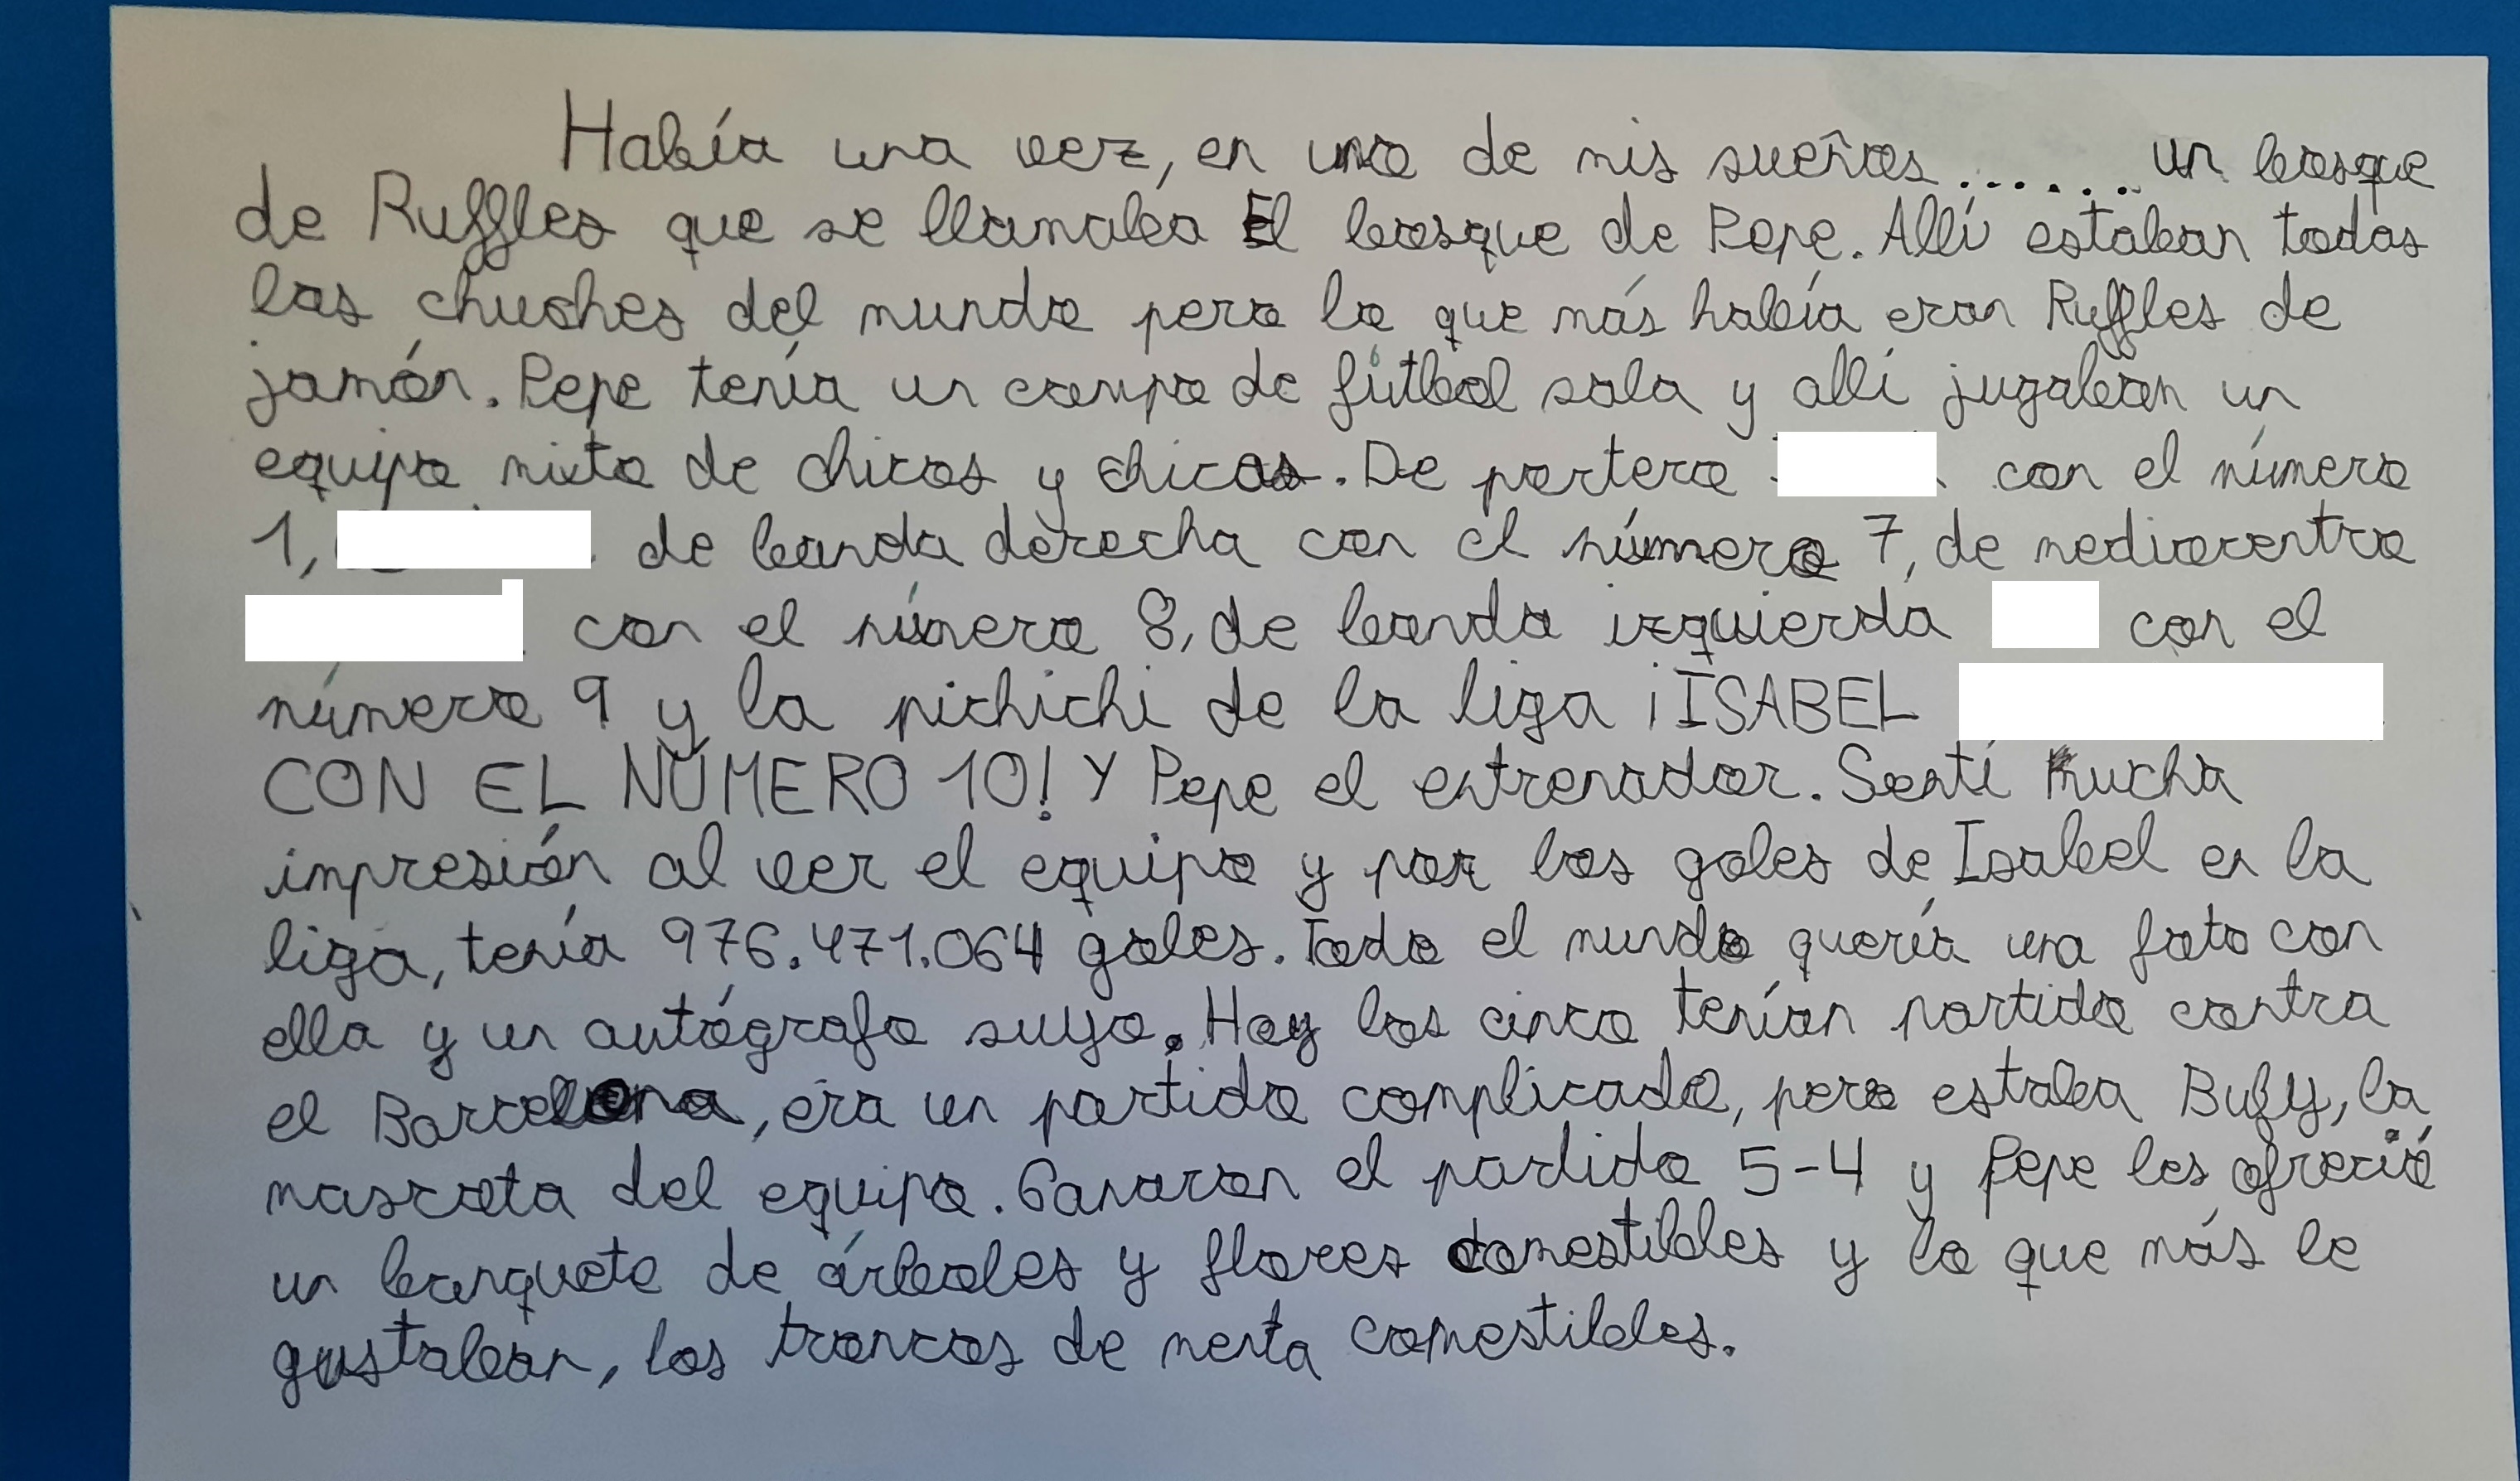 Había una vez, en uno de mis sueños....... un bosque
de Ruffles que se llamaba El bosque de Pepe. Allí estaban todas
las chuches del mundo pero lo que más había eran Ruffles de
jamón. Pepe tenía un campo de fútbol sala y allí jugaban un
equipo mixto de chicos y chicas. De portero con el número
1, de banda derecha con el número 7, de mediocentro
con el número 8, de banda izquierda con el
número 9 y la pichichi de la liga ¡ISABEL
CON EL NÚMERO 10! Y Pepe el entrenador. Sentí mucha
impresión al ver el equipo y por los goles de Isabel en la
liga, tenía 976.471.064 goles. Todo el mundo quería una foto con
ella y un autógrafo suyo. Hoy los cinco tenían partido contra
el Barcelona, era un partido complicado, pero estaba Bufy, la
mascota del equipo. Ganaron el partido 5-4 y Pepe les ofreció
un banquete de árboles y flores comestibles y lo que más le
gustaban, los troncos de menta comestibles.